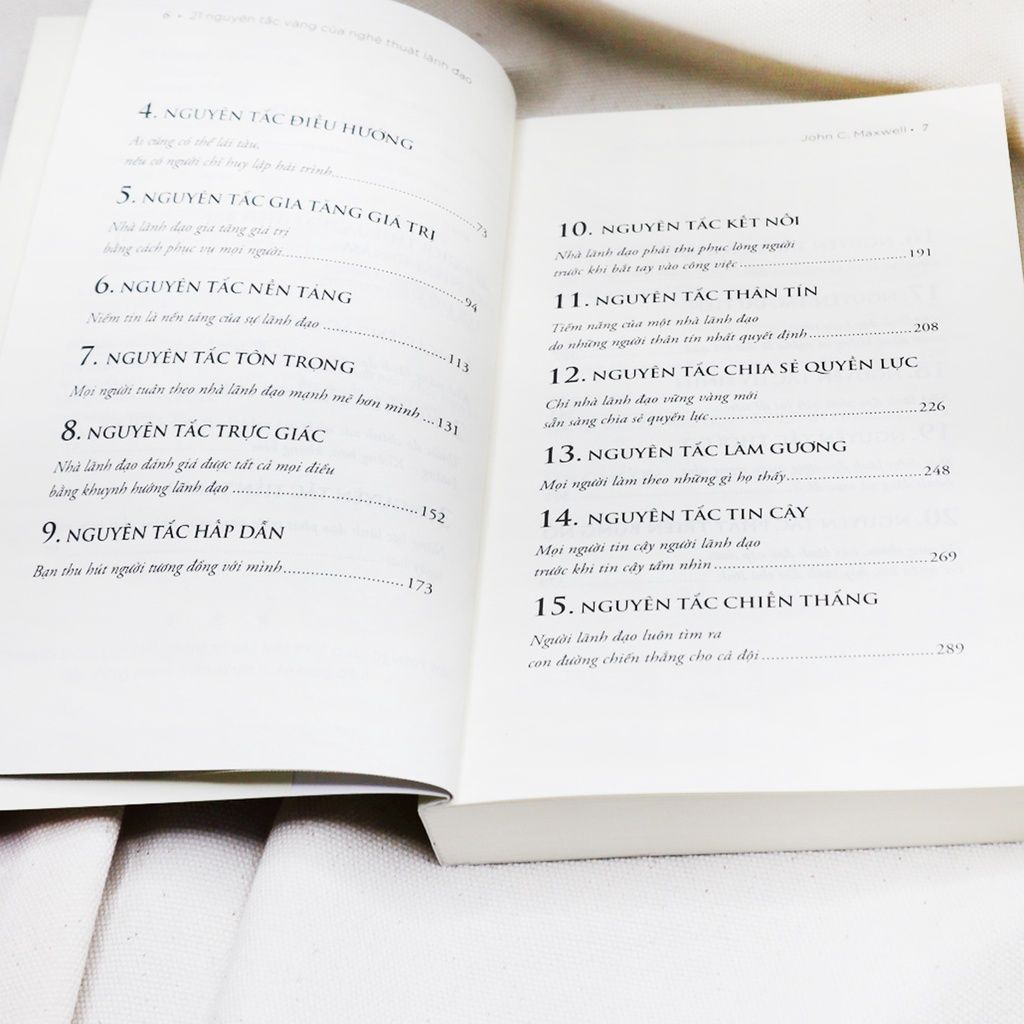 6 • 21 nguyên tắc vàng của nghệ thuật lãnh đạo
4. NGUYÊN TẮC ĐIỀU HƯỚNG
Ai cũng có thể lái tàu,
nếu có người chỉ huy lập hải trình........................73
5. NGUYÊN TẮC GIA TĂNG GIÁ TRỊ
Nhà lãnh đạo gia tăng giá trị
bằng cách phục vụ mọi người........................94
6. NGUYÊN TẮC NỀN TẢNG
Niềm tin là nền tảng của sự lãnh đạo ........................113
7. NGUYÊN TẮC TÔN TRỌNG
Mọi người tuân theo nhà lãnh đạo mạnh mẽ hơn mình ...131
8. NGUYÊN TẮC TRỰC GIÁC
Nhà lãnh đạo đánh giá được tất cả mọi điều
bằng khuynh hướng lãnh đạo ........................152
9. NGUYÊN TẮC HẤP DẪN
Bạn thu hút người tương đồng với mình........................173
John C. Maxwell • 7
10. NGUYÊN TẮC KẾT NỐI
Nhà lãnh đạo phải thu phục lòng người
trước khi bắt tay vào công việc ........................191
11. NGUYÊN TẮC THÂN TÍN
Tiềm năng của một nhà lãnh đạo
do những người thân tín nhất quyết định........................208
12. NGUYÊN TẮC CHIA SẺ QUYỀN LỰC
Chỉ nhà lãnh đạo vững vàng mới
sẵn sàng chia sẻ quyền lực........................226
13. NGUYÊN TẮC LÀM GƯƠNG
Mọi người làm theo những gì họ thấy........................248
14. NGUYÊN TẮC TIN CẬY
Mọi người tin cậy người lãnh đạo
trước khi tin cậy tầm nhìn ........................269
15. NGUYÊN TẮC CHIẾN THẮNG
Người lãnh đạo luôn tìm ra
con đường chiến thắng cho cả đội ........................289